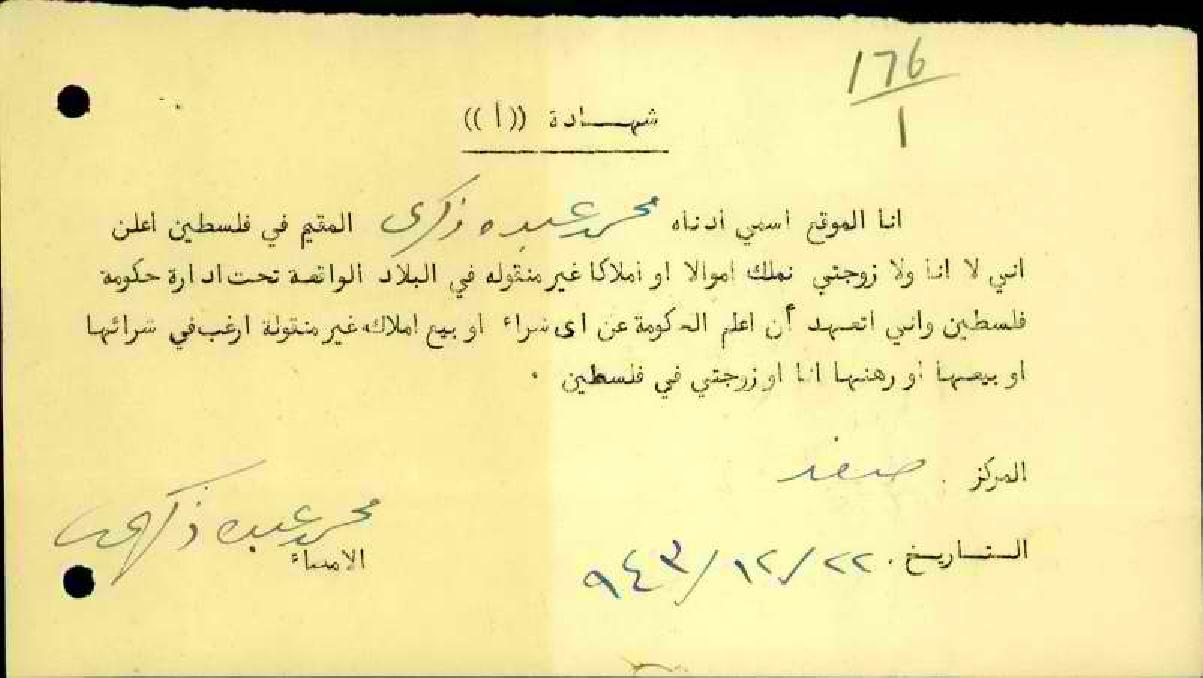 176
1
شهادة ((أ))
انا الموقع اسمي ادناه محمد عبده ذكرى المقيم في فلسطين اعلن
اني لا انا ولا زوجتي نملك اموالا او املاكا غير منقوله في البلاد الواقعة تحت ادارة حكومة
فلسطين واني اتعهد أن اعلم الحكومة عن اى شراء او بيع املاك غير منقولة ارغب في شرائها
او بيعها او رهنها انا او زوجتي في فلسطين .
المركز . صفد
التاريخ . ٢٢/١٢/٩٤٣
محمد عبده ذكرى
الامضاء